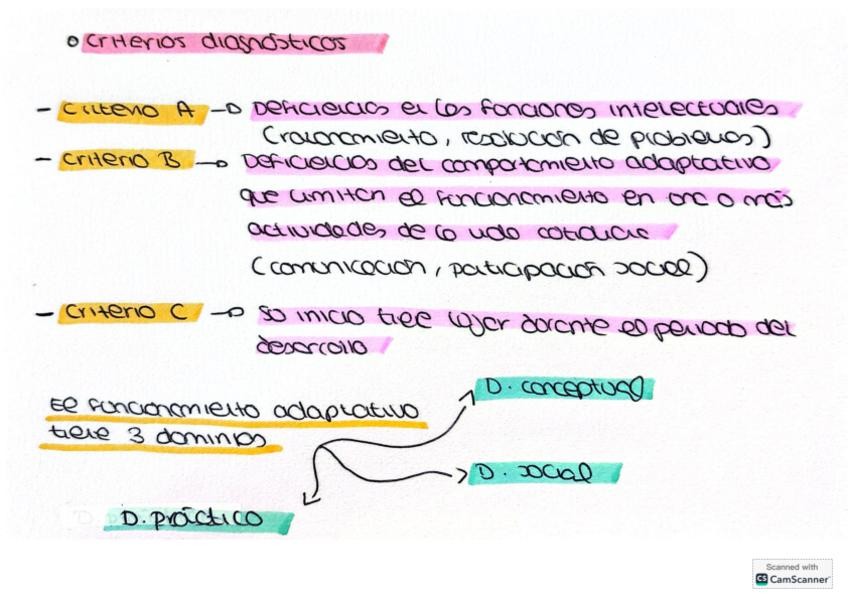 • Criterios diagnósticos
- Criterio A → Deficiencias en las funciones intelectuales
(razonamiento, resolución de problemas)
- Criterio B → Deficiencias del comportamiento adaptativo
que limitan el funcionamiento en una o más
actividades de la vida cotidiana
(comunicación, participación social)
- Criterio C → Su inicio tiene lugar durante el periodo del
desarrollo
El funcionamiento adaptativo
tiene 3 dominios
D. conceptual
D. social
D. práctico
Scanned with
CS CamScanner